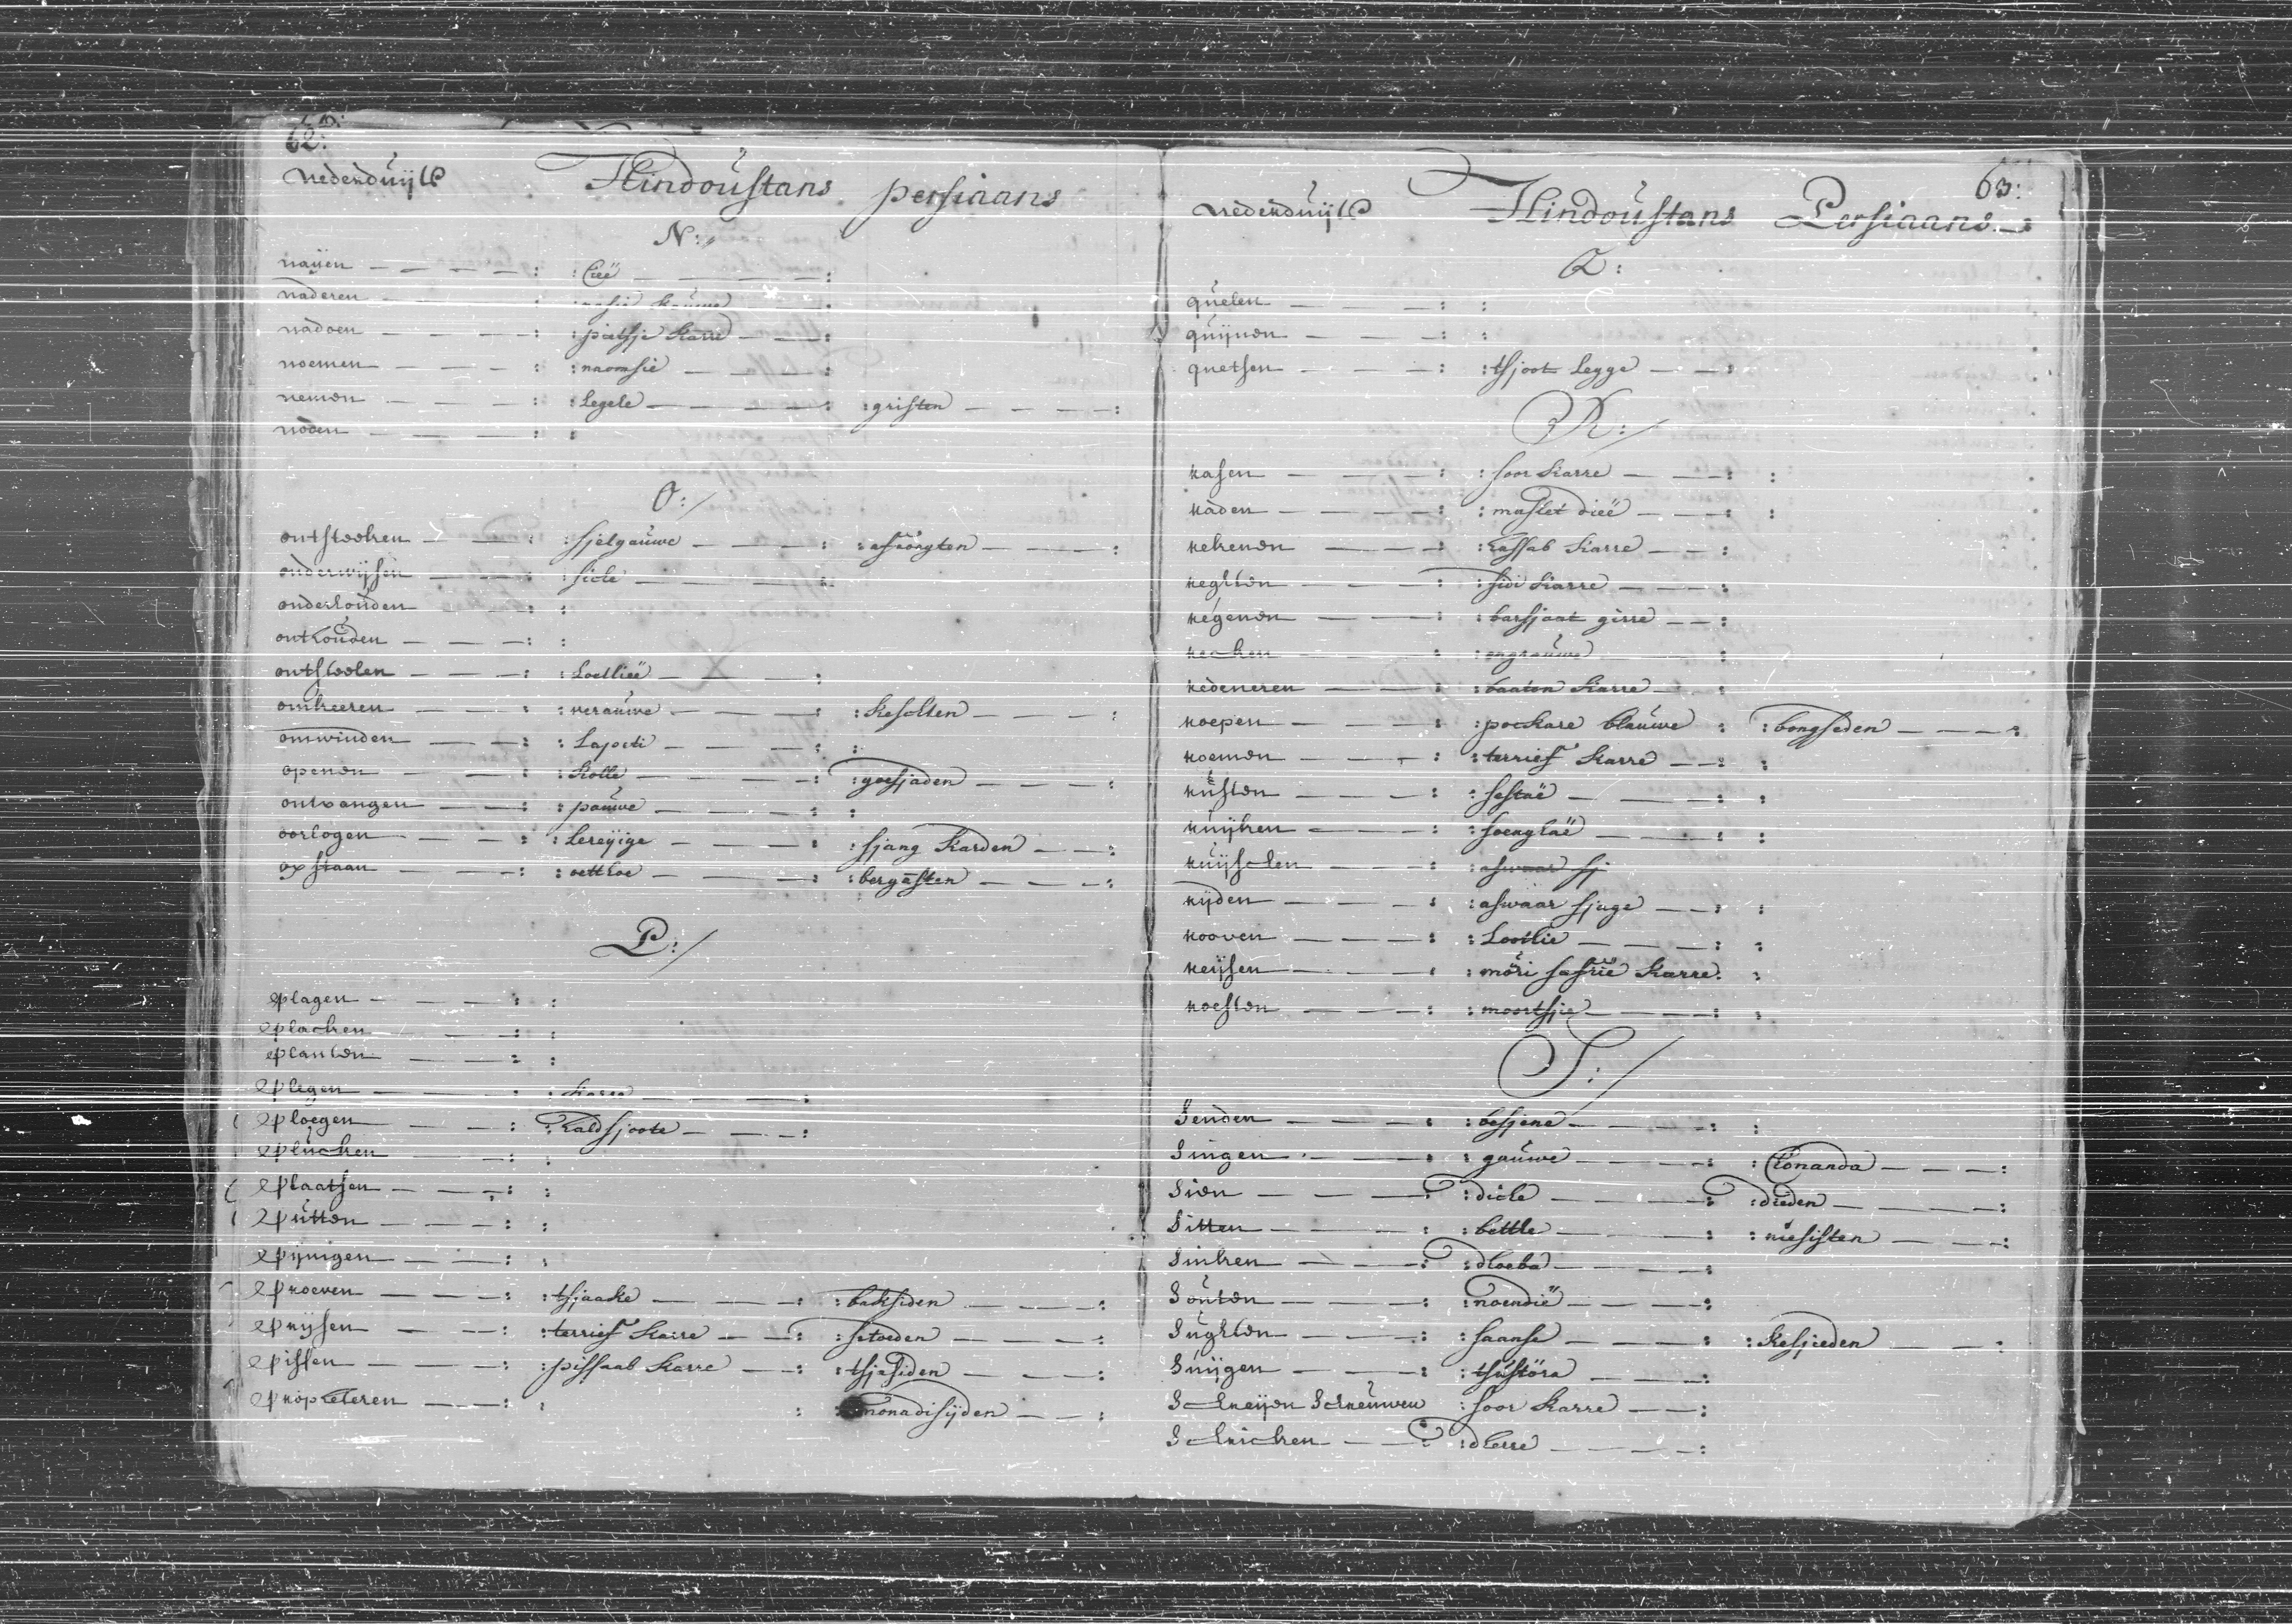 62:
Nederduijts Hindoustans persiaans
N:
naijen : Cieë :
naderen : nasie kauwe :
nadoen : pietsje karre :
noemen : naomsie :
nemen : Legele : gristen :
noden : :
O:/
ontsteeken : sjelgauwe : afrongten :
onderwijsen : sicke :
onderhouden : :
onthouden : :
ontsteelen : Loetlieë :
omkeeren : verauwe : keschten :
omwinden : Lapeti : :
openen : kolle : goesjaden :
ontvangen : pauwe : :
oorlogen : Lereijige : sjang karden :
opstaan : oetthoe : bergasten :
P:/
plagen : :
placken : :
planten : :
plegen : karre :
ploegen : haldsjoote :
plucken : :
plaatsen : :
putten : :
pijnigen : :
proeven : tsjaake : baksiden :
prijsen : terrief karre : setoeden :
pissen : pissaab karre : tsjesiden :
propeteren : : monadisijden :
63:
Nederduijts Hindoustans Persiaans
Q:
quelen : :
quijnen : :
quetsen : tsjoot Legge :
R:/
rasen : soor karre : :
raden : maslet dieë : :
rekenen : hassab karre :
reghten : sidi karre :
regenen : barsjaat girre :
recken : engrauwe :
redeneren : baaten karre :
roepen : poekare blauwe : bongseden :
roemen : terrief karre : :
rusten : sestaë : :
ruijken : soenghaë : :
ruijschen : aswaar sj
rijden : aswaar sjuge : :
rooven : Lootlie : :
reijsen : möri safrië karre : :
roesten : moortsjie : :
S:/
Senden : besjene : :
Singen : gauwe : Chonanda :
Sien : dicke : dieden :
Sitten : bettle : niesisten :
Sinken : dhoeba :
Souten : noendië :
Sughten : saanse : kesjieden :
Suijgen : tsustöra :
Schreijen Schreuwen : soor karre :
Schricken : dherre :